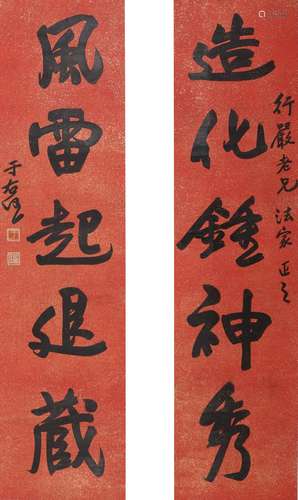 造化鍾神秀
行嚴老兄法家正之
風雷起退藏
于右任